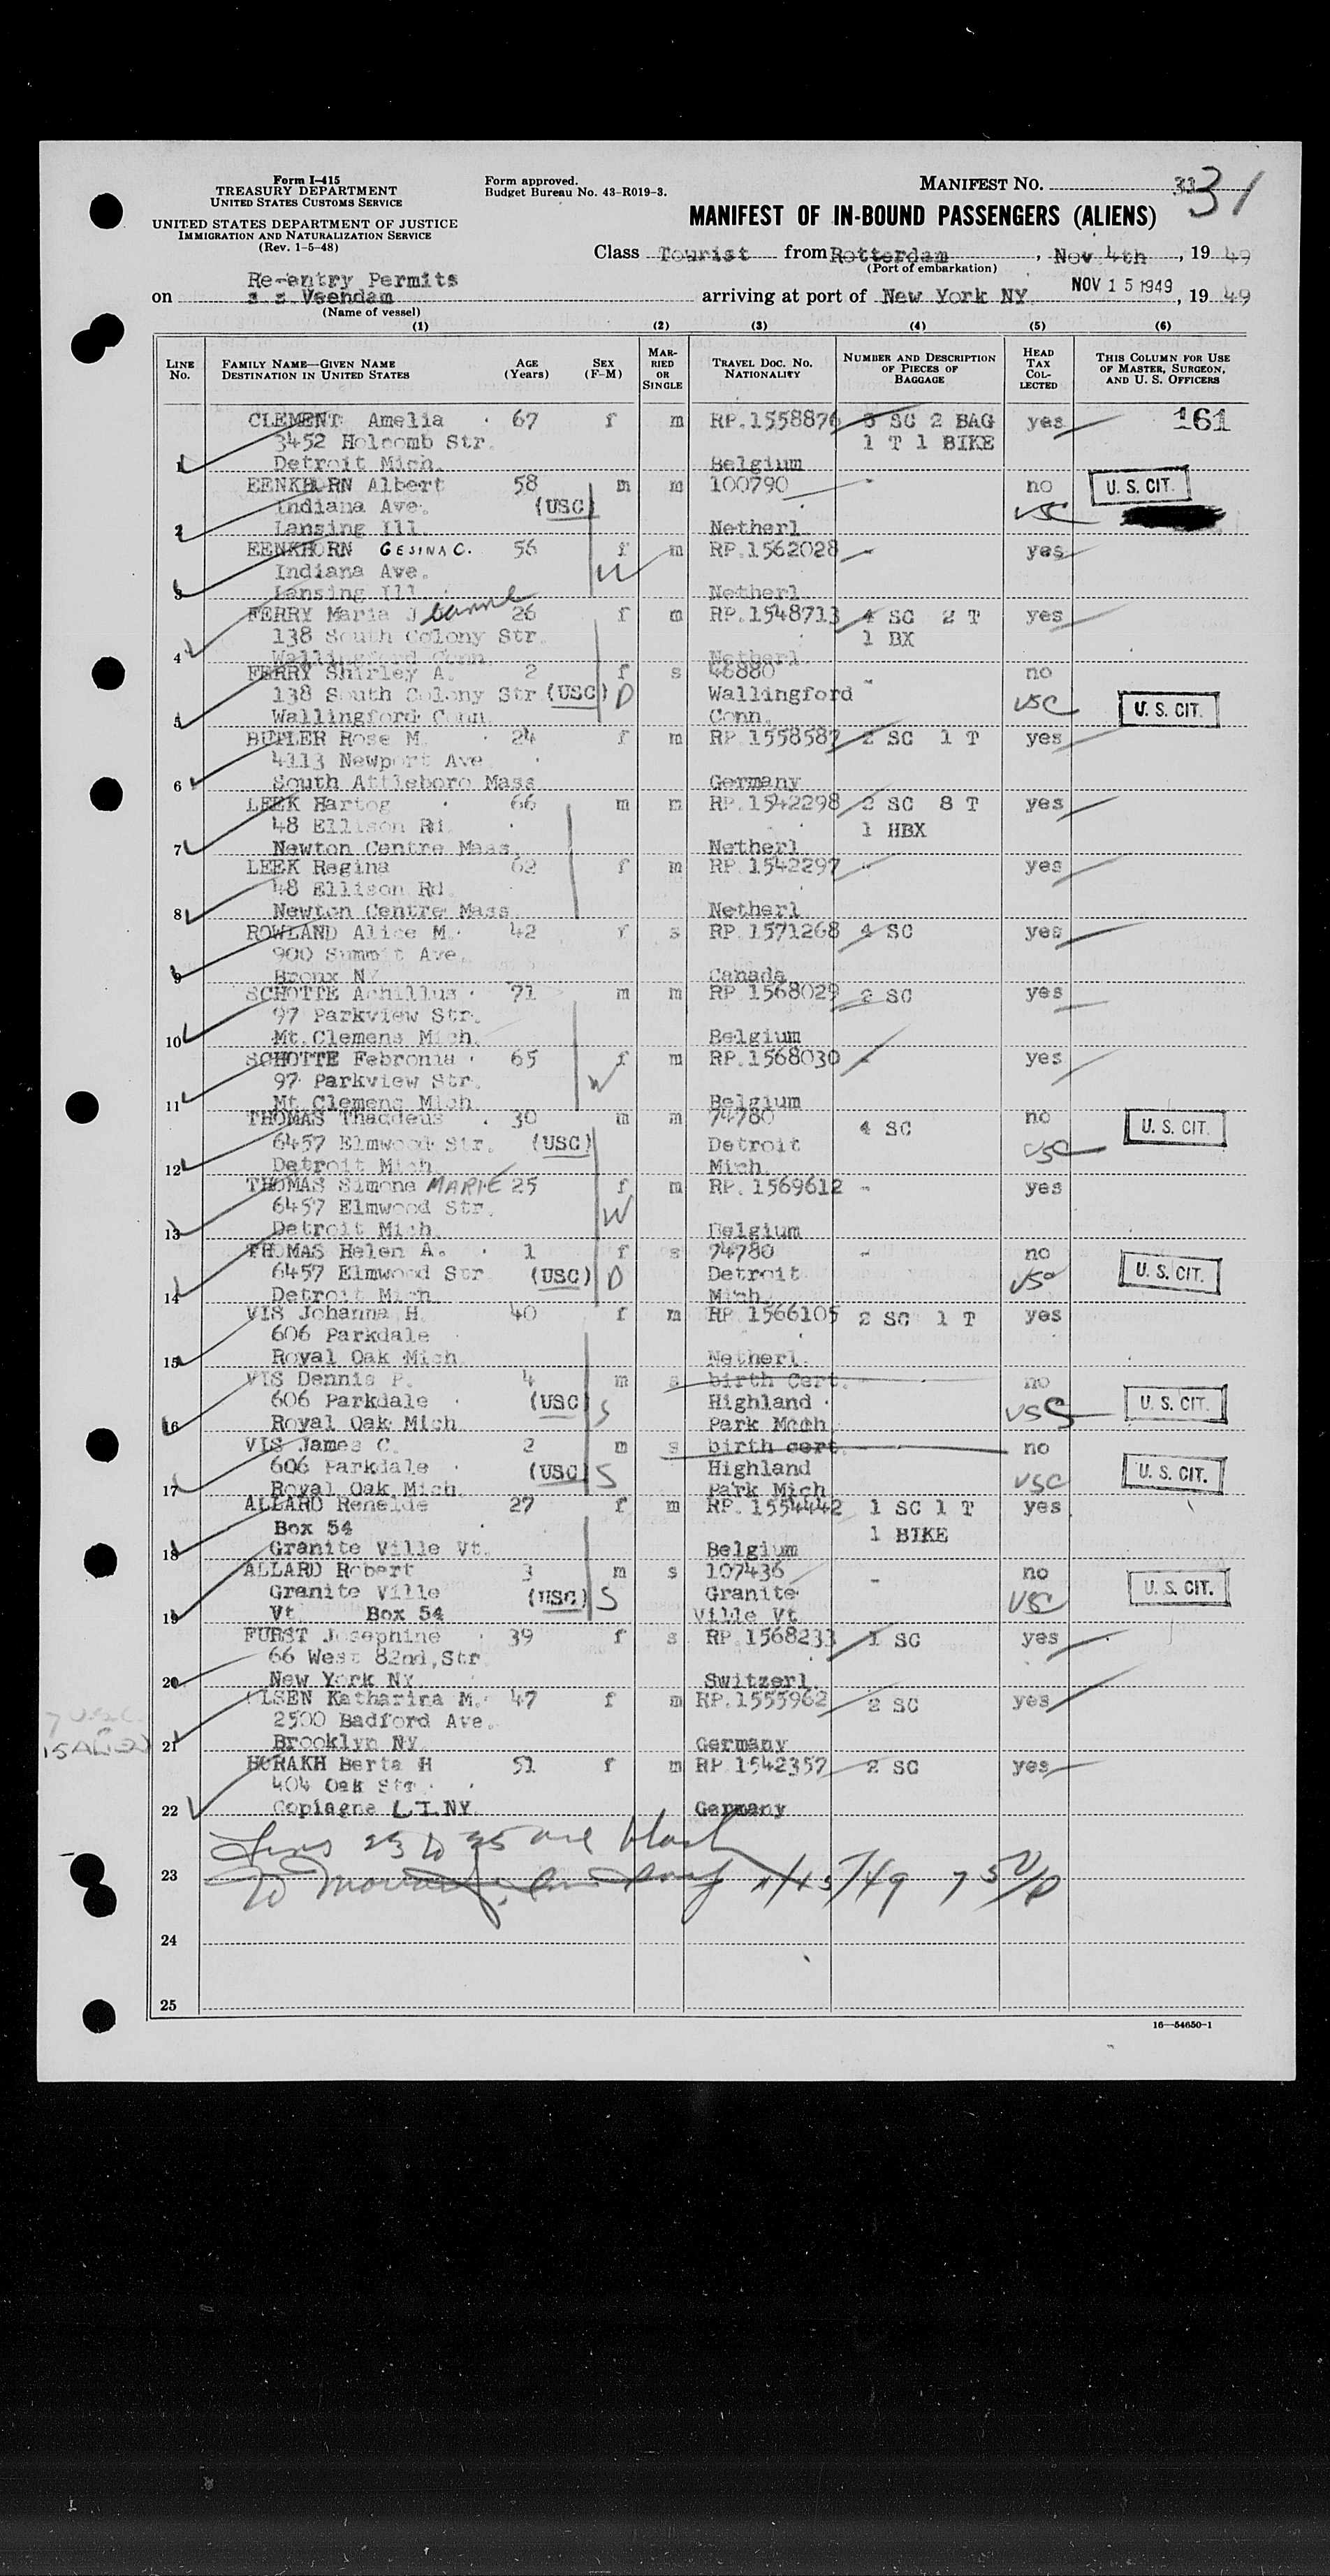 Form I-415
TREASURY DEPARTMENT
UNITED STATES CUSTOMS SERVICE
UNITED STATES DEPARTMENT OF JUSTICE
IMMIGRATION AND NATURALIZATION SERVICE
(Rev. 1-5-48)
Form approved.
Budget Bureau No. 43-R019-3.
MANIFEST NO. 31
MANIFEST OF IN-BOUND PASSENGERS (ALIENS)
Class Tourist from Rotterdam, Nov. 4th, 19 49
(Port of embarkation)
Re-entry Permits
on s s Veendam arriving at port of New York NY NOV 15 1949, 19 49
(Name of vessel)
(1) (2) (3) (4) (5) (6)
LINE No. FAMILY NAME—GIVEN NAME DESTINATION IN UNITED STATES AGE (Years) SEX (F-M) MARRIED OR SINGLE TRAVEL DOC. NO. NATIONALITY NUMBER AND DESCRIPTION OF PIECES OF BAGGAGE HEAD TAX COLLECTED THIS COLUMN FOR USE OF MASTER, SURGEON, AND U. S. OFFICERS
CLEMENT Amelia 67 f m RP.1558876 SC 2 BAG yes 161
3452 Holcomb Str. 1 T 1 BIKE
1 Detroit Mich. Belgium
EENKHORN Albert 58 m m 100790 - no U. S. CIT.
Indiana Ave. (USC) USC
2 Lansing Ill. Netherl
EENKHORN GESINA C. 56 f m RP.1562028 - yes
Indiana Ave. W
3 Lansing Ill. Netherl.
FERRY Maria Jeanne 26 f m RP.1548713 4 SC 2 T yes
138 South Colony Str. 1 BX
4 Wallingford Conn. Netherl.
FERRY Shirley A. 2 f s 46880 - no
138 South Colony Str (USC) D Wallingford USC U. S. CIT.
5 Wallingford Conn. Conn.
BUTLER Rose M. 24 f m RP 1558587 2 SC 1 T yes
4113 Newport Ave
6 South Attleboro Mass Germany
LEEK Hartog 66 m m RP.1542298 2 SC 8 T yes
48 Ellison Rd. 1 HBX
7 Newton Centre Mass. Netherl
LEEK Regina 62 f m RP.1542297 - yes
48 Ellison Rd
8 Newton Centre Mass. Netherl
ROWLAND Alice M. 42 f s RP.1571268 4 SC yes
900 Summit Ave.
9 Bronx NY Canada
SCHOTTE Achillus 71 m m RP 1568029 2 SC yes
97 Parkview Str.
10 Mt. Clemens Mich. Belgium
SCHOTTE Febronia 65 f m RP.1568030 - yes
97 Parkview Str. W
11 Mt Clemens Mich Belgium
THOMAS Thaddeus 30 m m 74780 4 SC no U. S. CIT.
6457 Elmwood Str. (USC) Detroit USC
12 Detroit Mich. Mich.
THOMAS Simone MARIE 25 f m RP.1569612 - yes
6457 Elmwood Str. W
13 Detroit Mich. Belgium
THOMAS Helen A. 1 f s 74780 - no
6457 Elmwood Str (USC) D Detroit USC U. S. CIT.
14 Detroit Mich. Mich.
VIS Johanna H. 40 f m RP 1566105 2 SC 1 T yes
606 Parkdale
15 Royal Oak Mich. Netherl.
VIS Dennis P. 4 m s birth Cert. no
606 Parkdale (USC) S Highland USC U. S. CIT.
16 Royal Oak Mich. Park Mich
VIS James C. 2 m s birth cert. no
606 Parkdale (USC) S Highland USC U. S. CIT.
17 Royal Oak Mich Park Mich
ALLARD Renelde 27 f m RP.1554442 1 SC 1 T yes
Box 54 1 BIKE
18 Granite Ville Vt. Belgium
ALLARD Robert 3 m s 107436 - no
Granite Ville (USC) S Granite USC U. S. CIT.
19 Vt Box 54 Ville Vt
FURST Josephine 39 f s RP.1568233 1 SC yes
66 West 82nd,Str
20 New York NY Switzerl
OLSEN Katharina M. 47 f m RP.1555962 2 SC yes
2500 Badford Ave.
21 Brooklyn NY. Germany
BURAKH Berta H 51 f m RP 1542357 2 SC yes
404 Oak Str
22 Copiagne L I NY. Germany
Lines 23 to 25 are blank
23 11/15/49
24
25
16—54650-1